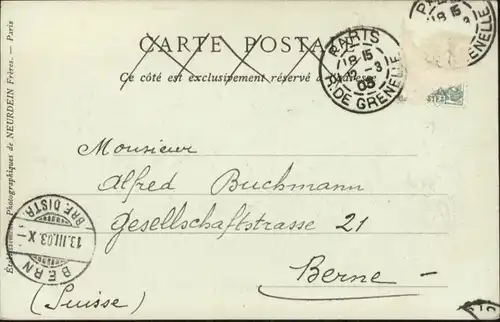 CARTE POSTALE
Ce côté est exclusivement réservé à l'adresse
PARIS
18 15
3
03
R. DE GRENELLE
18 15
3
GRENELLE
Monsieur
Alfred Buchmann
Gesellschaftstrasse 21
Berne
(Suisse)
BRF. DISTR.
13.III.03.X
BERN
Photographiques de NEURDEIN Frères. — Paris